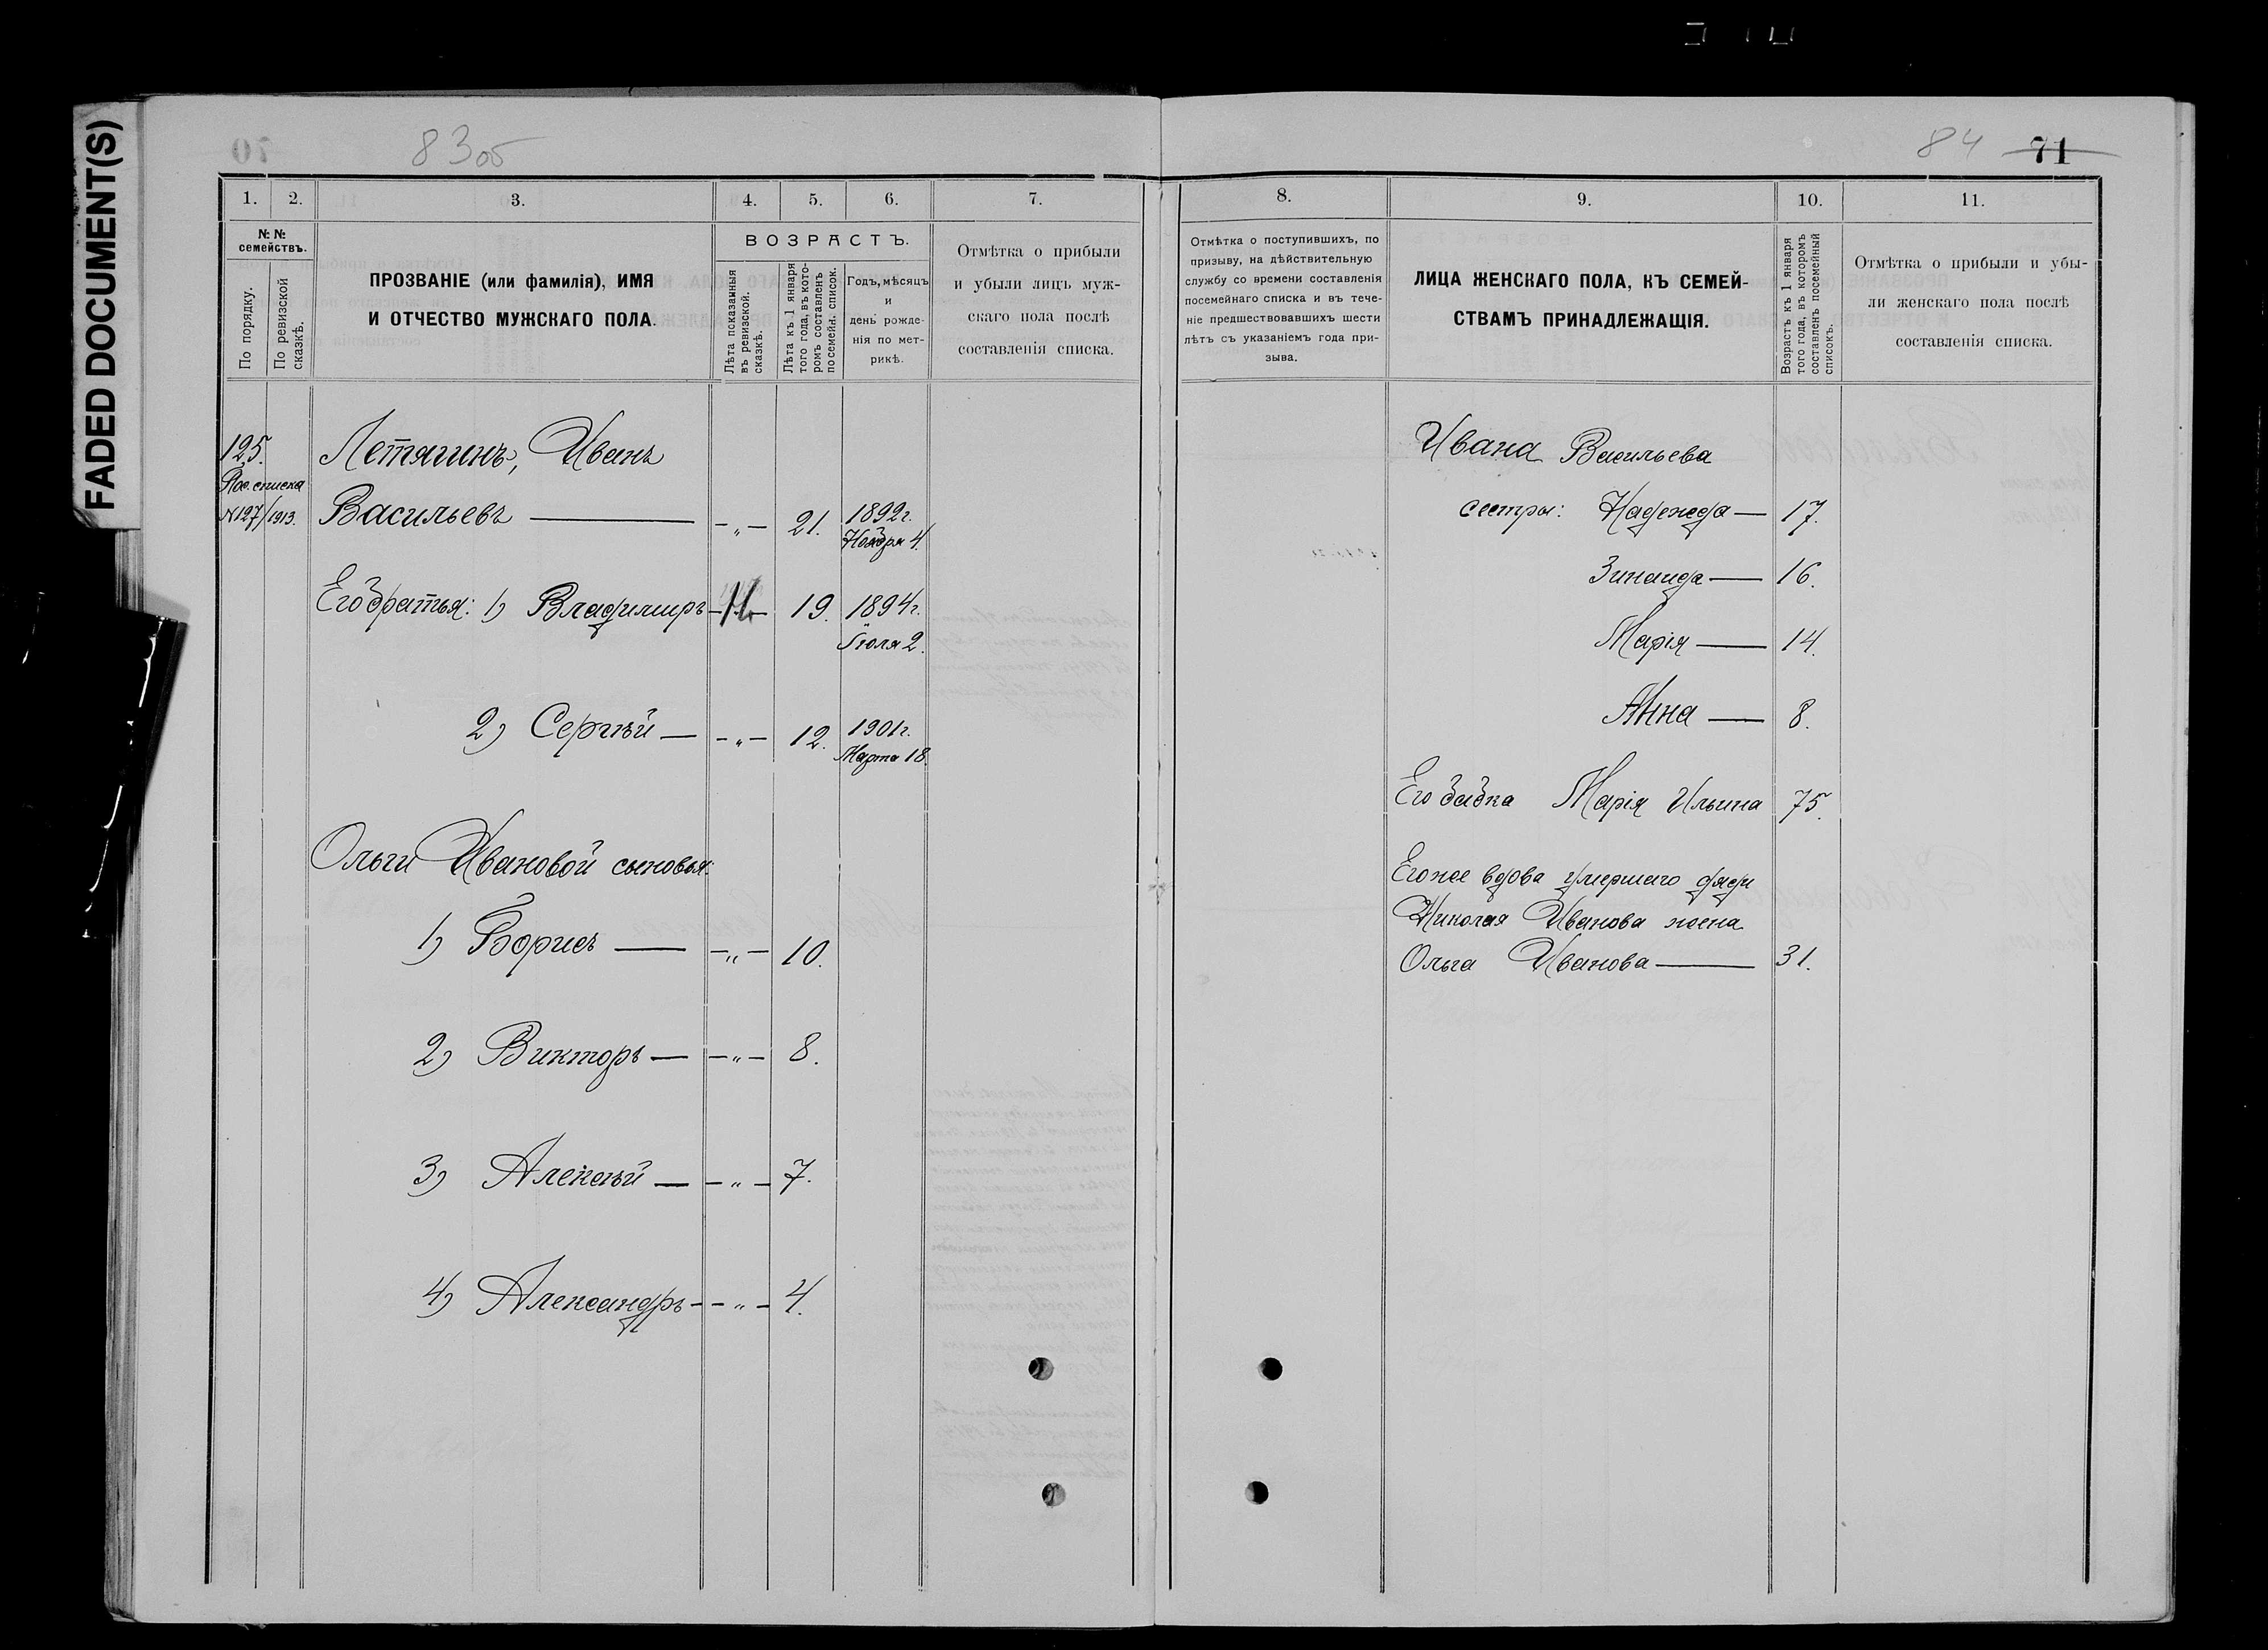 FADED DOCUMENT(S)
83об
84 71
1. 2. 3. 4. 5. 6. 7.
№ №
семействъ.
По порядку.
По ревизской
сказкѣ.
ПРОЗВАНІЕ (или фамилія), ИМЯ
И ОТЧЕСТВО МУЖСКАГО ПОЛА.
ВОЗРАСТЪ.
Лѣта показанныя
въ ревизской.
сказкѣ.
Лѣта къ 1 января
того года, въ кото-
ромъ составленъ
посемейн. список.
Годъ, мѣсяцъ
и
день рожде-
нія по мет-
рикѣ.
Отмѣтка о прибыли
и убыли лицъ муж-
скаго пола послѣ
составленія списка.
125. Летягинъ, Иванъ
Пос. списка
№127/1913. Васильевъ — -„- 21. 1892г.
Ноября 4.
Его братья: 1) Владимиръ 19. 1894г.
Іюля 2.
2) Сергѣй — -„- 12. 1901г.
Марта 18.
Ольги Ивановой сыновья:
1) Борисъ — -„- 10.
2) Викторъ — -„- 8.
3) Алексѣй — -„- 7.
4) Александръ - -„- 4.
8. 9. 10. 11.
Отмѣтка о поступившихъ, по
призыву, на дѣйствительную
службу со времени составленія
посемейнаго списка и въ тече-
ніе предшествовавшихъ шести
лѣтъ съ указаніемъ года при-
зыва.
ЛИЦА ЖЕНСКАГО ПОЛА, КЪ СЕМЕЙ-
СТВАМЪ ПРИНАДЛЕЖАЩІЯ.
Возрастъ къ 1 января
того года, въ которомъ
составленъ посемейный
списокъ.
Отмѣтка о прибыли и убы-
ли женскаго пола послѣ
составленія списка.
Ивана Васильева
сестры: Надежда — 17.
Зинаида — 16.
Марія — 14.
Анна — 8.
Его бабка Марія Ильина 75.
Его же вдова умершаго дяди
Николая Иванова жена
Ольга Иванова — 31.